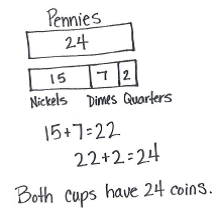 Pennies
24
15 7 2
Nickels Dimes Quarters
15+7=22
22+2=24
Both cups have 24 coins.